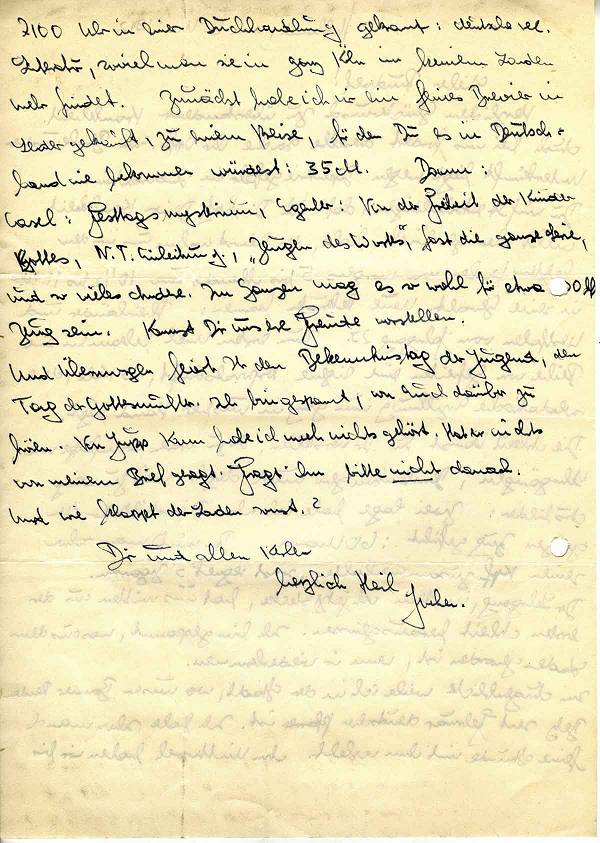 2100 Uhr in einer Buchhandlung gekramt: deutsche rel.
Literatur, soviel man sie in ganz Köln in keinem Laden
mehr findet. Zunächst habe ich mir ein feines Brevier in
Leder gekauft, zu einem Preise, für den Du es in Deutsch-
land nie bekommen würdest: 35 M. Dann:
Casel: Festtagsmysterium, Egerter: Von der Freiheit der Kinder
Gottes, N.T. Einleitung, „Zeugen des Worts", fast die ganze Reihe,
und so vieles andere. Im Ganzen mag es so wohl für etwa
Zeug sein. Kannst Dir unsere Freude vorstellen.
Und Übermorgen feiert Ihr den Bekenntnistag der Jugend, den
Tag der Gottesmutter. Ich bin gespannt, von Euch darüber zu
hören. Von Jupp Kann habe ich noch nichts gehört. Hat er nichts
von meinem Brief gesagt. Fragt ihn bitte nicht danach.
Und wie klappt der Laden sonst.?
Dir und allen Kerlen
herzlich Heil
Jochen.